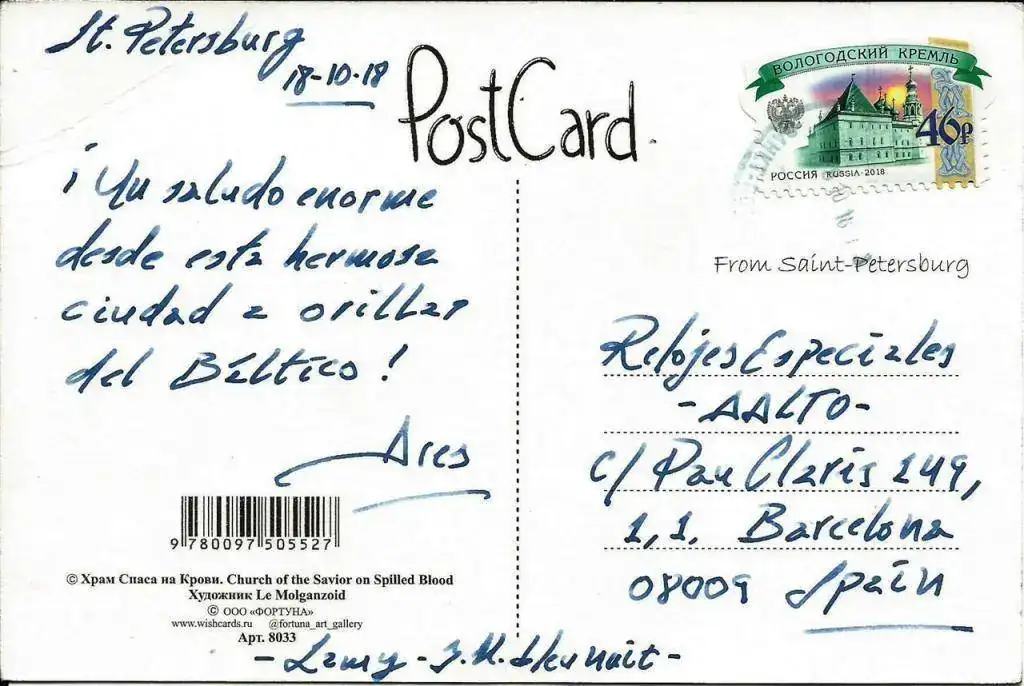 St. Petersburg
18-10-18
PostCard
ВОЛОГОДСКИЙ КРЕМЛЬ
46₽
РОССИЯ RUSSIA · 2018
¡Un saludo enorme
desde esta hermosa
ciudad a orillas
del Báltico!
Ares
From Saint-Petersburg
Relojes Especiales
-AALTO-
c/ Pau Claris 149,
1,1. Barcelona
08009 Spain
9 780097 505527
© Храм Спаса на Крови. Church of the Savior on Spilled Blood
Художник Le Molganzoid
© ООО «ФОРТУНА»
www.wishcards.ru @fortuna_art_gallery
Арт. 8033